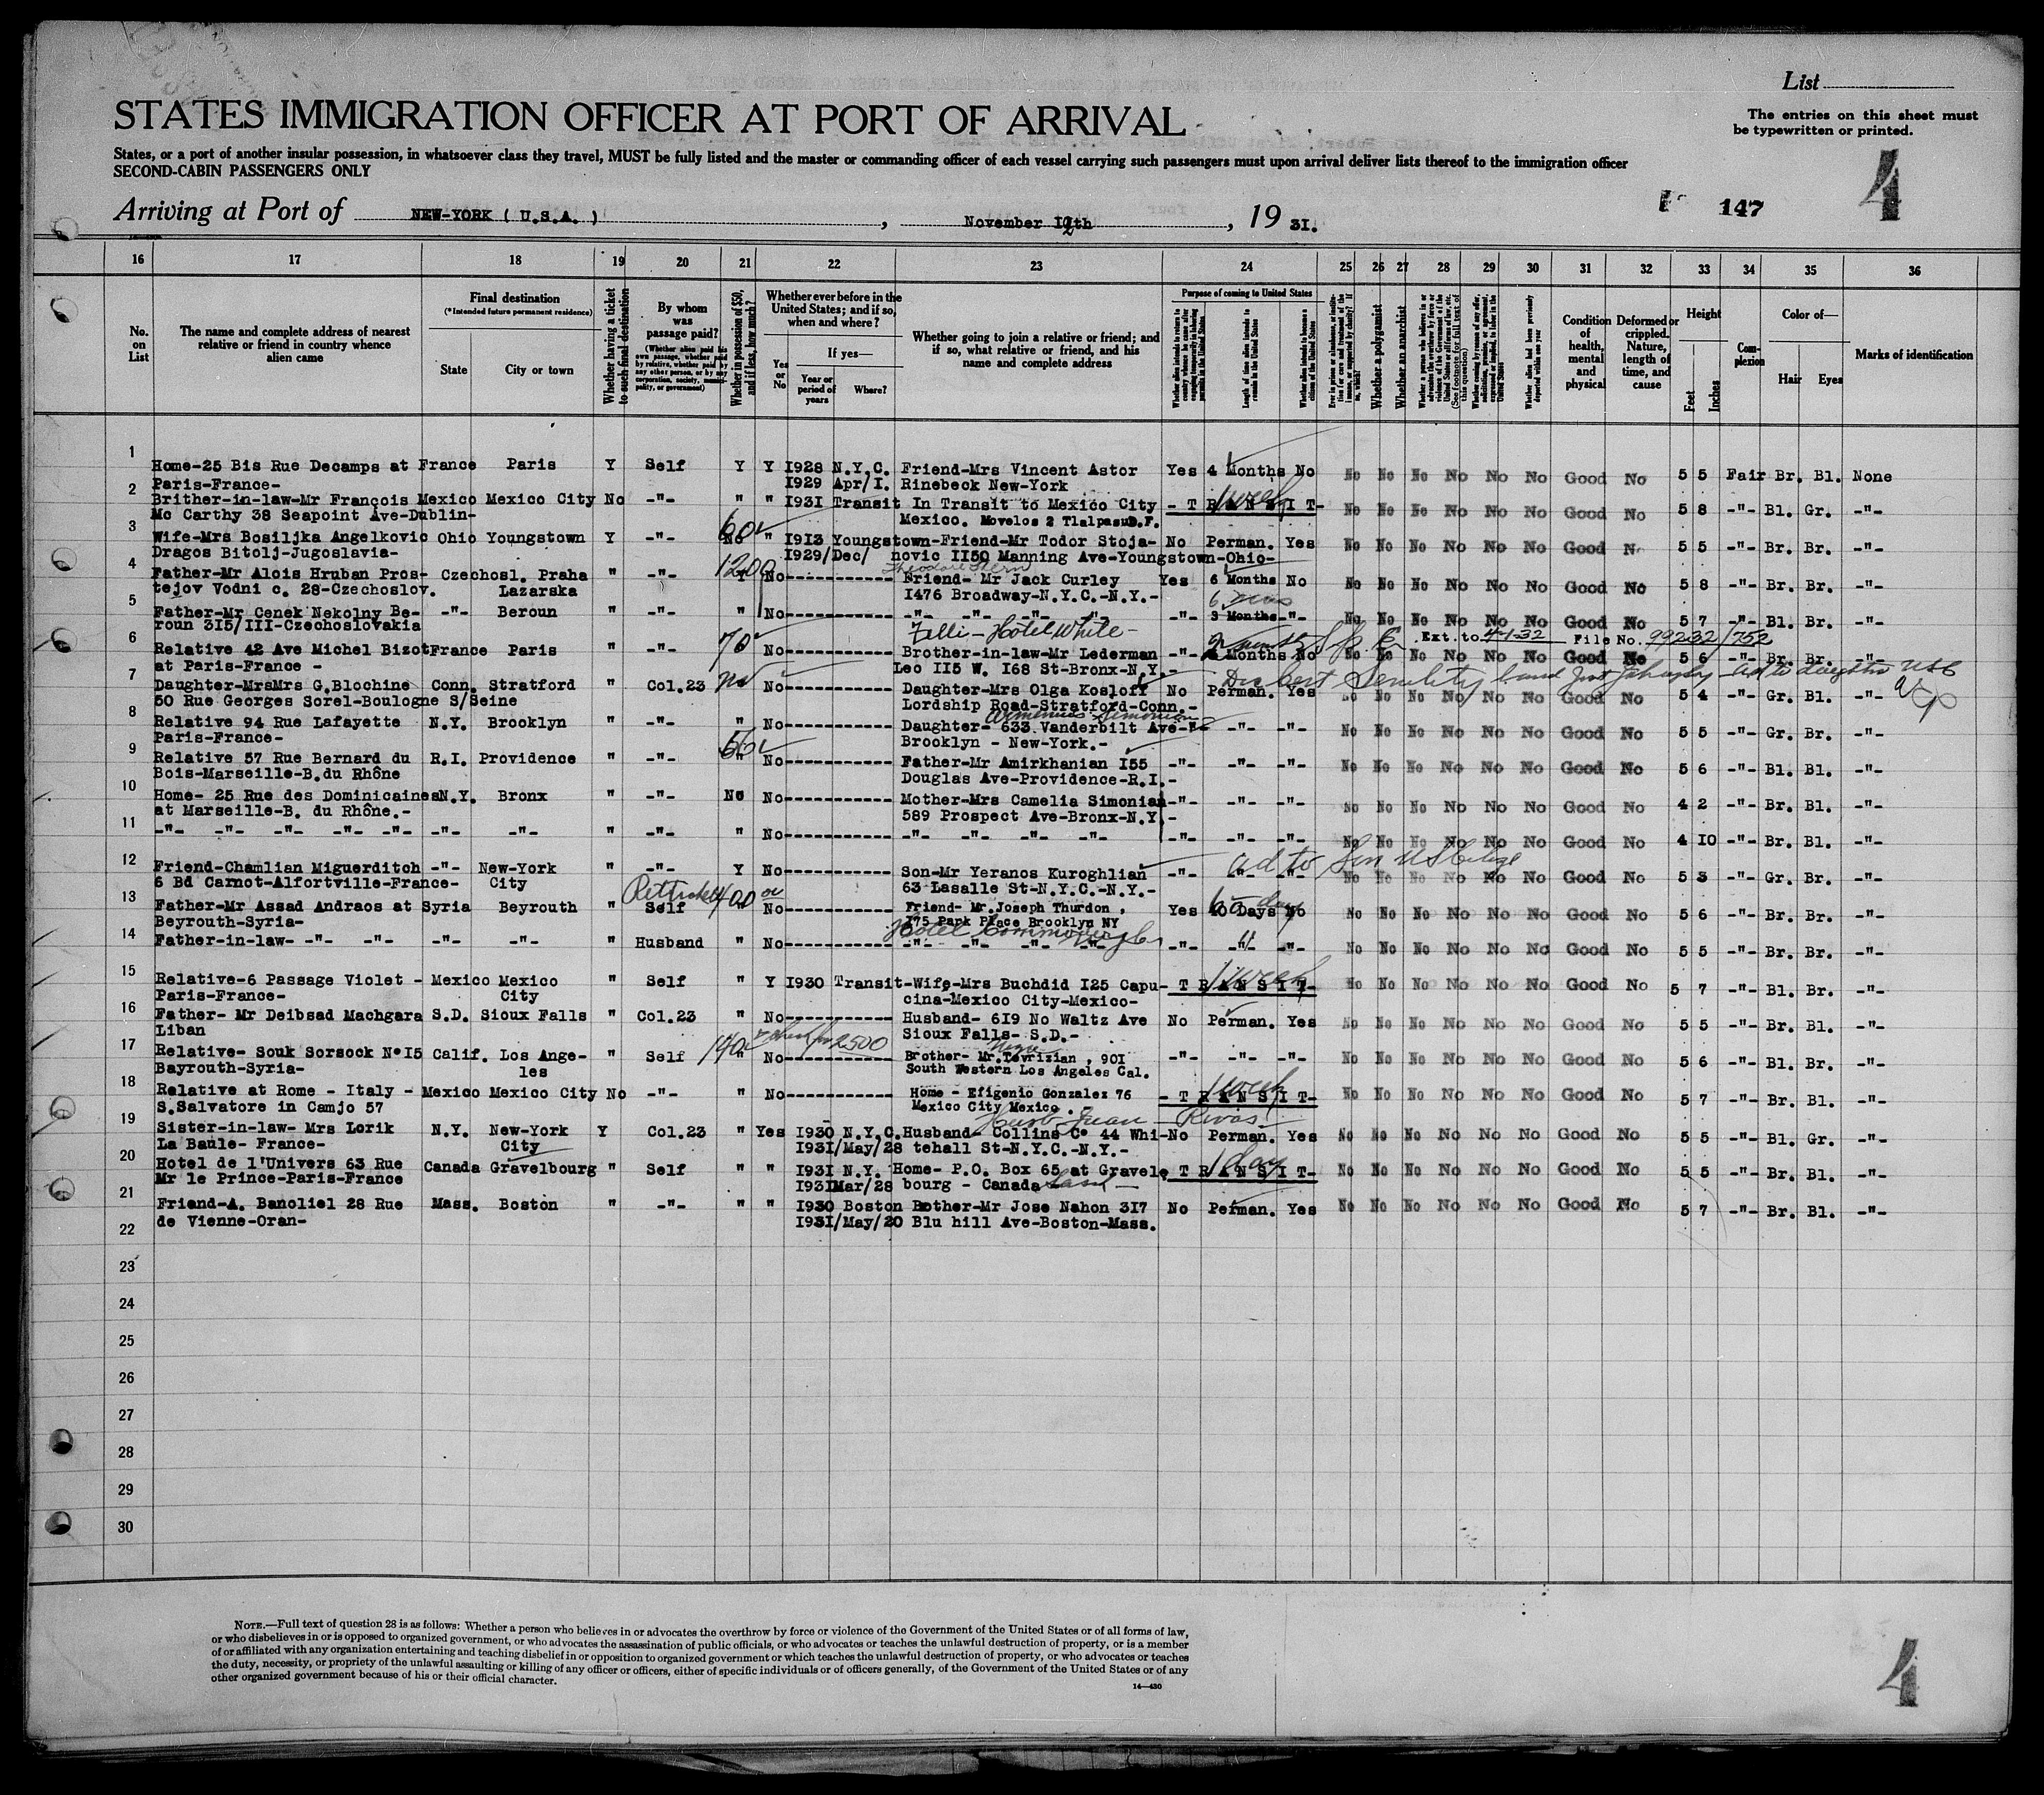 List
The entries on this sheet must
be typewritten or printed.
STATES IMMIGRATION OFFICER AT PORT OF ARRIVAL
States, or a port of another insular possession, in whatsoever class they travel, MUST be fully listed and the master or commanding officer of each vessel carrying such passengers must upon arrival deliver lists thereof to the immigration officer
SECOND-CABIN PASSENGERS ONLY
4
147
Arriving at Port of NEW-YORK ( U.S.A. ) , November 12th , 19 31.
16 17 18 19 20 21 22 23 24 25 26 27 28 29 30 31 32 33 34 35 36
No. on List
The name and complete address of nearest relative or friend in country whence alien came
Final destination
(*Intended future permanent residence)
State City or town
Whether having a ticket to such final destination
By whom was passage paid?
(Whether alien paid his own passage, whether paid by relative, whether paid by any other person, or by any corporation, society, municipality, or government)
Whether in possession of $50, and if less, how much?
Whether ever before in the United States; and if so, when and where?
Yes or No
If yes—
Year or period of years Where?
Whether going to join a relative or friend; and if so, what relative or friend, and his name and complete address
Purpose of coming to United States
Length of time alien intends to remain in the United States
Whether a polygamist
Whether an anarchist
Condition of health, mental and physical
Deformed or crippled. Nature, length of time, and cause
Height
Feet Inches
Complexion
Color of—
Hair Eyes
Marks of identification
1 Home-25 Bis Rue Decamps at France Paris Y Self Y Y I928 N.Y.C. Friend-Mrs Vincent Astor Yes 4 Months No No No No No No No Good No 5 5 Fair Br. Bl. None
Paris-France- I929 Apr/I. Rinebeck New-York
2 Brither-in-law-Mr François Mexico Mexico City No -"- " " I931 Transit In Transit to Mexico City - T R A N S I T- 1 week No No No No No No Good No 5 8 -"- Bl. Gr. -"-
Mc Carthy 38 Seapoint Ave-Dublin- Mexico. Movelos 2 Tlalpasud.F.
3 Wife-Mrs Bosiljka Angelkovic Ohio Youngstown Y -"- 60 " I9I3 Youngstown-Friend-Mr Todor Stoja- No Perman. Yes No No No No No No Good No 5 5 -"- Br. Br. -"-
Dragos Bitolj-Jugoslavia- I929/Dec/ novic II50 Manning Ave-Youngstown-Ohio-
4 Father-Mr Alois Hruban Pros- Czechosl. Praha " -"- 1200 No Friend- Mr Jack Curley Yes 6 Months No No No No No No No Good No 5 8 -"- Br. Br. -"-
tejov Vodni c. 28-Czechoslov. Lazarska I476 Broadway-N.Y.C.-N.Y.-
5 Father-Mr Cenek Nekolny Be- -"- Beroun " -"- " No -"- -"- -"- -"- -"- 3 Months -"- No No No No No No Good No 5 7 -"- Bl. Br. -"-
roun 3I5/III-Czechoslovakia
Hotel White Ext. to 4-1-32 File No. 99232/752
6 Relative 42 Ave Michel Bizot France Paris " -"- 70 No Brother-in-law-Mr Lederman -"- Months No No No No No No No Good No 5 6 -"- Br. Br. -"-
at Paris-France - Leo II5 W. I68 St-Bronx-N.Y.-
7 Daughter-MrsMrs G.Blochine Conn. Stratford " Col.23 No Daughter-Mrs Olga Kosloff No Perman. Yes No No No No No No Good No 5 4 -"- Gr. Bl. -"-
50 Rue Georges Sorel-Boulogne S/Seine Lordship Road-Stratford-Conn.-
8 Relative 94 Rue Lafayette N.Y. Brooklyn " -"- " No Daughter- 633 Vanderbilt Ave- -"- -"- No No No No No No Good No 5 5 -"- Gr. Br. -"-
Paris-France- Brooklyn - New-York.-
9 Relative 57 Rue Bernard du R.I. Providence " -"- No Father-Mr Amirkhanian I55 -"- -"- -"- No No No No No No Good No 5 6 -"- Bl. Bl. -"-
Bois-Marseille-B.du Rhône Douglas Ave-Providence-R.I.-
10 Home- 25 Rue des Dominicaines N.Y. Bronx " -"- No No Mother-Mrs Camelia Simonian -"- -"- -"- No No No No No No Good No 4 2 -"- Br. Bl. -"-
at Marseille-B. du Rhône.- 589 Prospect Ave-Bronx-N.Y.-
11 -"- -"- -"- -"- -"- -"- -"- " -"- " No -"- -"- -"- -"- -"- -"- -"- No No No No No No Good No 4 I0 -"- Br. Bl. -"-
12 Friend-Chamlian Miguerditch -"- New-York " -"- Y No Son-Mr Yeranos Kuroghlian -"- -"- -"- No No No No No No Good No 5 3 -"- Gr. Br. -"-
6 Bd Carnot-Alfortville-France- City 63 Lasalle St-N.Y.C.-N.Y.-
13 Father-Mr Assad Andraos at Syria Beyrouth " Self 400 No Friend- Mr Joseph Thurdon , Yes Days No No No No No No No Good No 5 6 -"- Br. Br. -"-
Beyrouth-Syria- I75 Park Place Brooklyn NY
14 Father-in-law- -"- -"- -"- -"- " Husband " No -"- -"- -"- -"- -"- -"- -"- No No No No No No Good No 5 5 -"- Br. Br. -"-
15 Relative-6 Passage Violet - Mexico Mexico " Self " Y I930 Transit-Wife-Mrs Buchdid I25 Capu- - T R A N S I T- 1 week No No No No No No Good No 5 7 -"- Bl. Br. -"-
Paris-France- City cina-Mexico City-Mexico-
16 Father- Mr Deibsad Machgara S.D. Sioux Falls " Col.23 " No Husband- 6I9 No Waltz Ave No Perman. Yes No No No No No No Good No 5 5 -"- Br. Bl. -"-
Liban Sioux Falls- S.D.-
17 Relative- Souk Sorsock N°I5 Calif. Los Ange- " Self 140 No Brother- Mr.Tevrizian , 90I -"- -"- -"- No No No No No No Good No 5 6 -"- Bl. Br. -"-
Bayrouth-Syria- les South Western Los Angeles Cal.
18 Relative at Rome - Italy - Mexico Mexico City No -"- " No Home - Efigenio Gonzalez 76 - T R A N S I T- 1 week No No No No No No Good No 5 7 -"- Br. Bl. -"-
S.Salvatore in Camjo 57 Mexico City Mexico .
Juan Rivas
19 Sister-in-law- Mrs Lorik N.Y. New-York Y Col.23 " Yes I930 N.Y.C. Husband- Collins C° 44 Whi- No Perman. Yes No No No No No No Good No 5 5 -"- Bl. Gr. -"-
La Baule- France- City I93I/May/28 tehall St-N.Y.C.-N.Y.-
20 Hotel de l'Univers 63 Rue Canada Gravelbourg " Self " " I93I N.Y. Home- P.O. Box 65 at Gravele T R A N S I T- 1 day No No No No No No Good No 5 5 -"- Br. Bl. -"-
Mr le Prince-Paris-France I93I Mar/28 bourg - Canada Sask
21 Friend-A. Banoliel 28 Rue Mass. Boston " -"- " " I930 Boston Bother-Mr Jose Nahon 3I7 No Perman. Yes No No No No No No Good No 5 7 -"- Br. Bl. -"-
de Vienne-Oran- I93I/May/20 Blu hill Ave-Boston-Mass.
22
23
24
25
26
27
28
29
30
NOTE.—Full text of question 28 is as follows: Whether a person who believes in or advocates the overthrow by force or violence of the Government of the United States or of all forms of law,
or who disbelieves in or is opposed to organized government, or who advocates the assassination of public officials, or who advocates or teaches the unlawful destruction of property, or is a member
of or affiliated with any organization entertaining and teaching disbelief in or opposition to organized government or which teaches the unlawful destruction of property, or who advocates or teaches
the duty, necessity, or propriety of the unlawful assaulting or killing of any officer or officers, either of specific individuals or of officers generally, of the Government of the United States or of any
other organized government because of his or their official character.
14—430
4